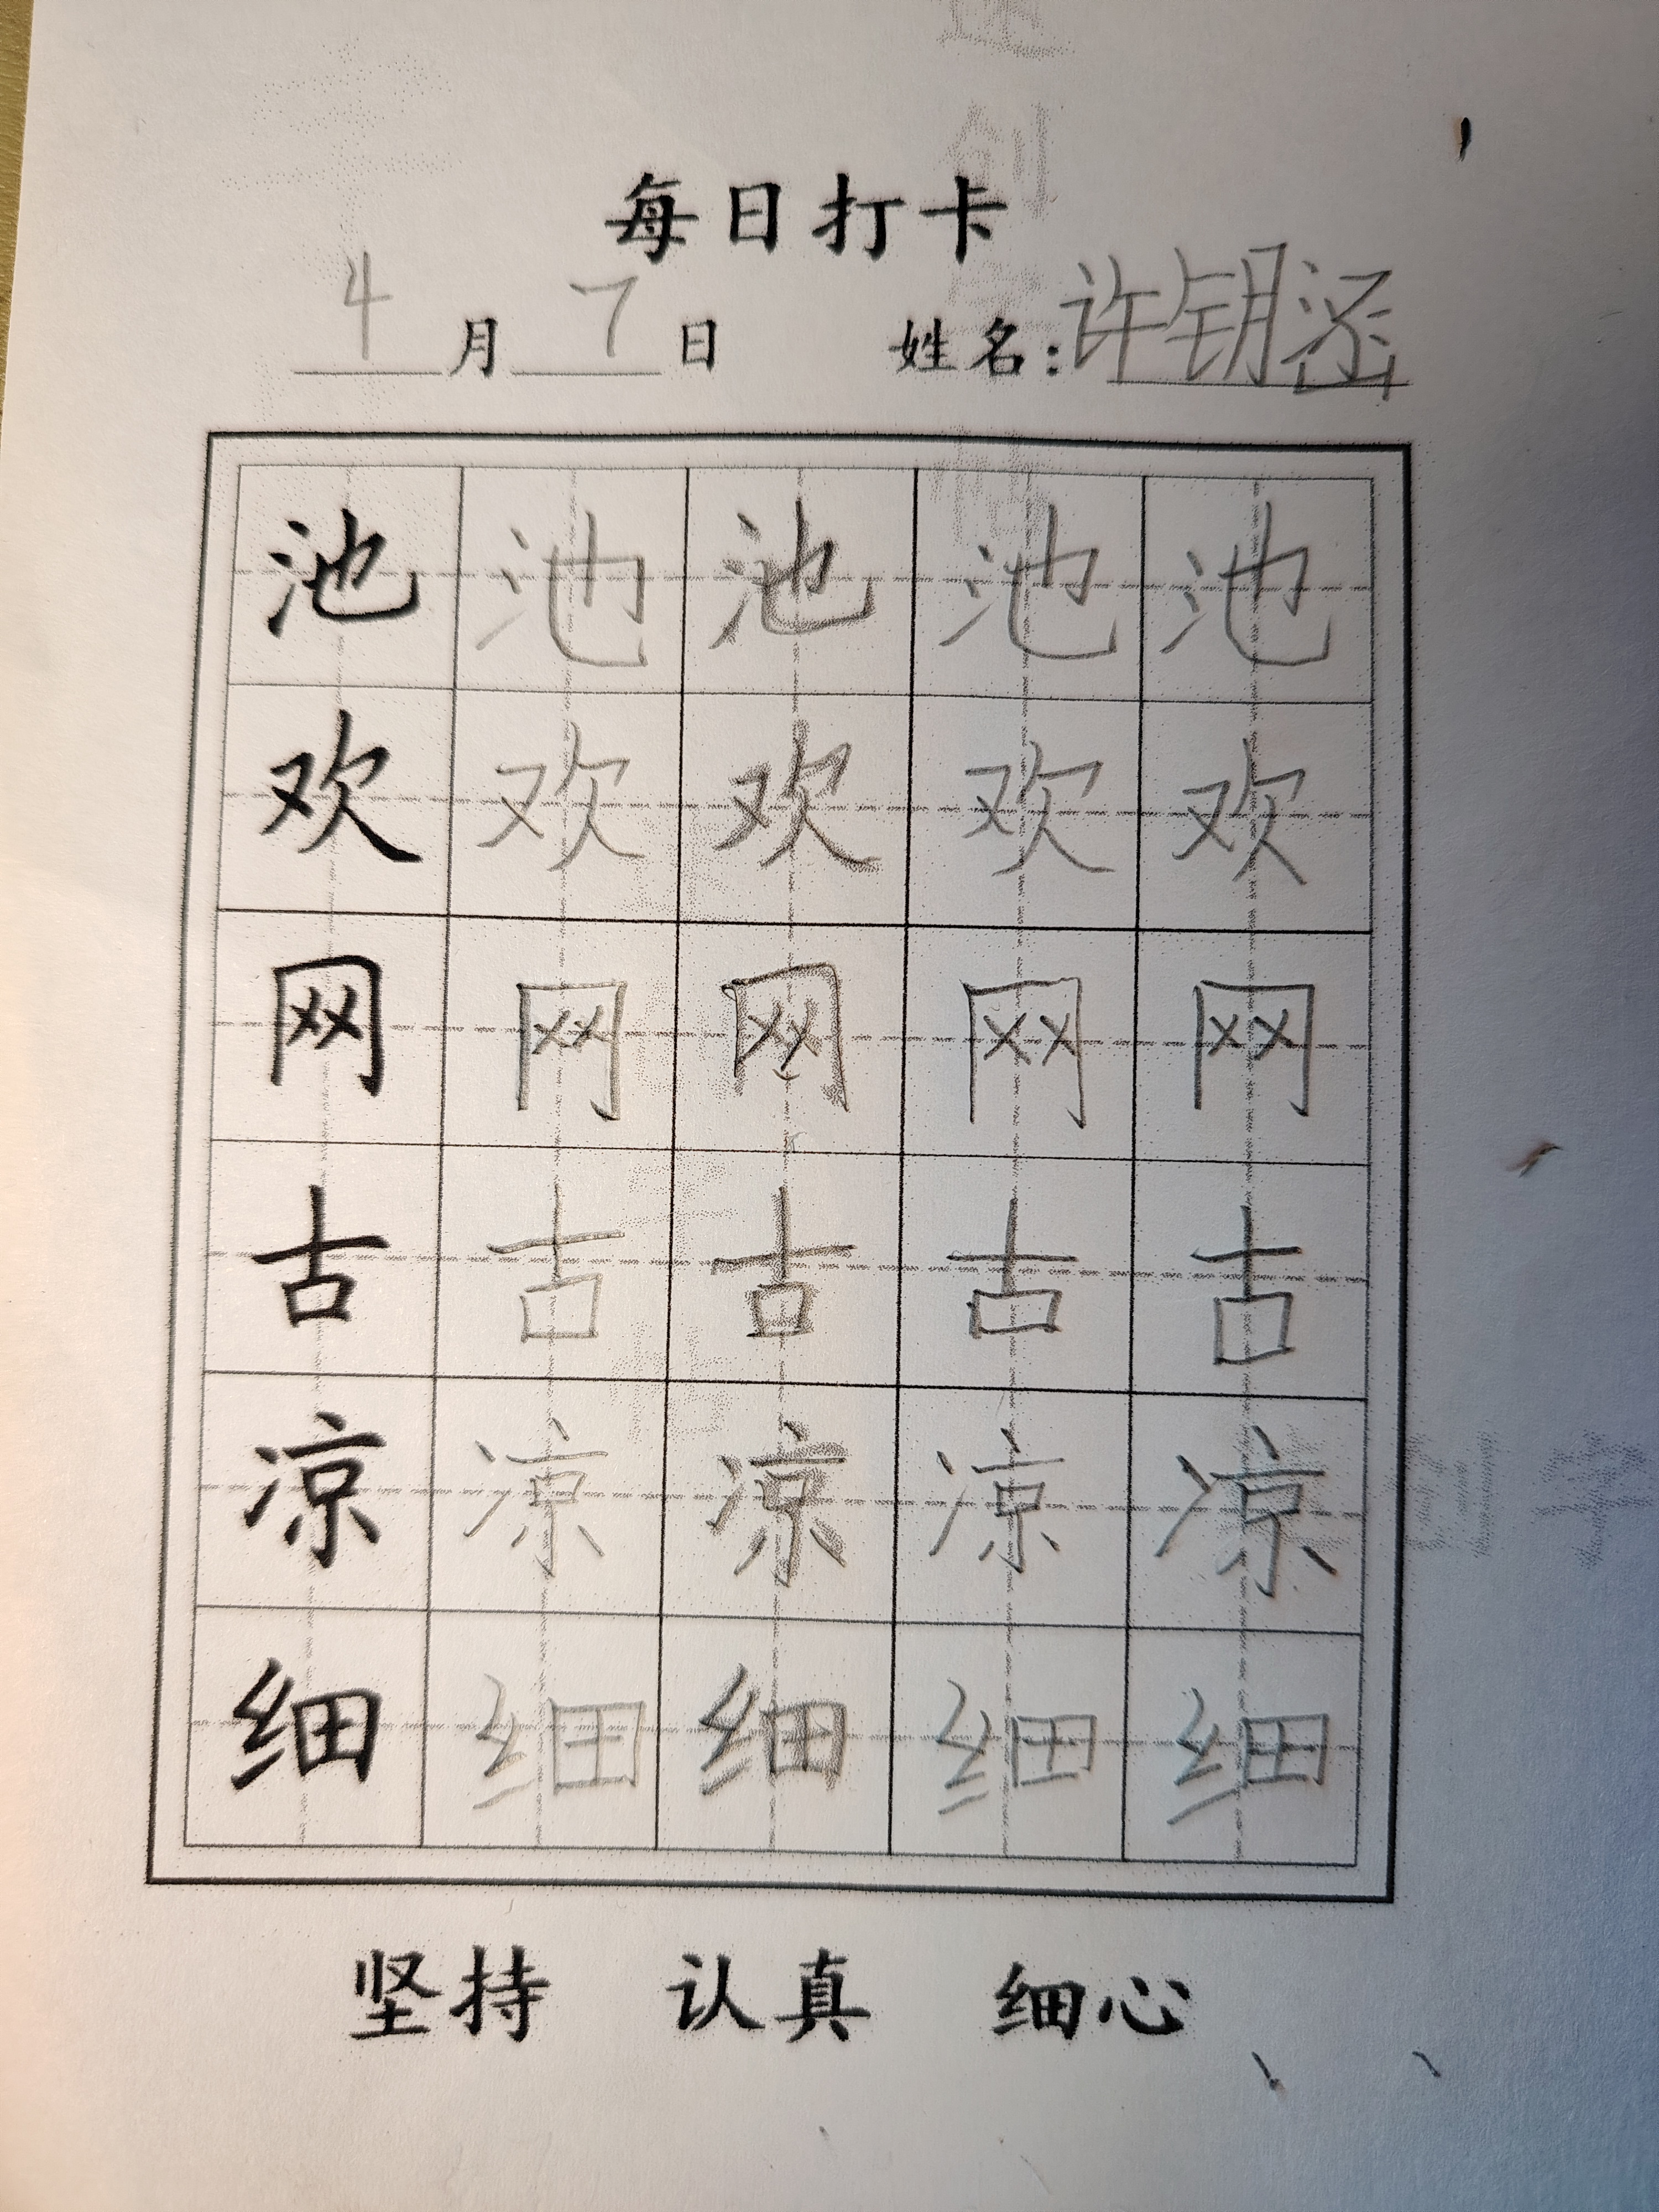 每日打卡
4月7日 姓名:许钥涵
池 池 池 池 池
欢 欢 欢 欢 欢
网 网 网 网 网
古 古 古 古 古
凉 凉 凉 凉 凉
细 细 细 细 细
坚持 认真 细心